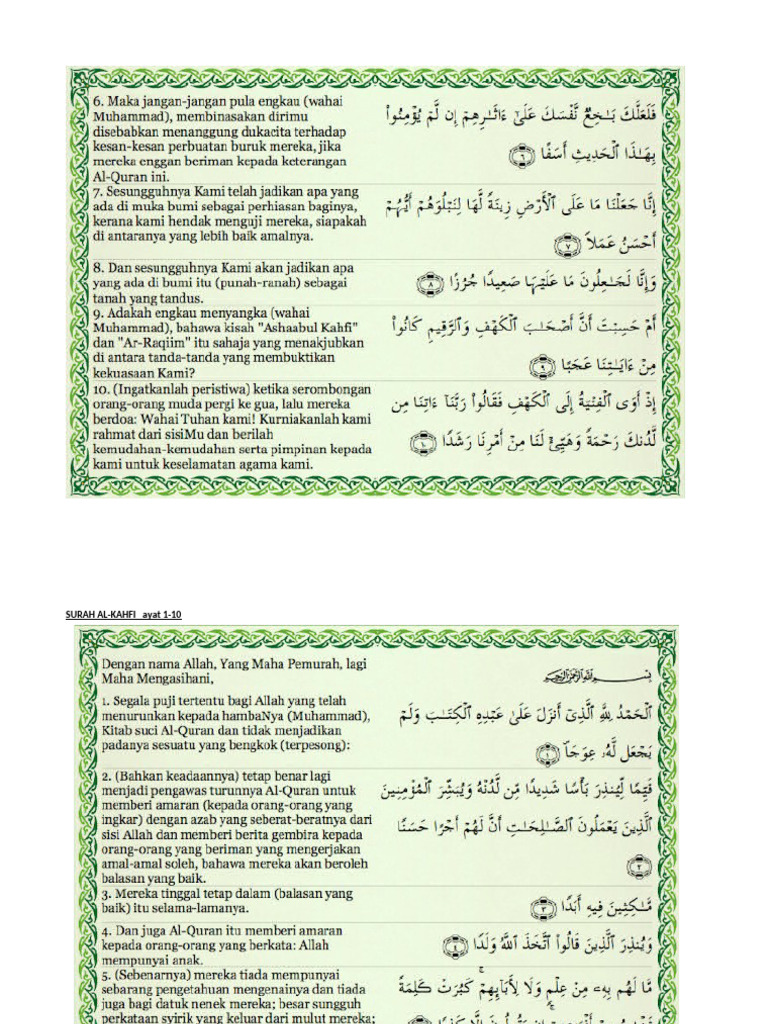 6. Maka jangan-jangan pula engkau (wahai
Muhammad), membinasakan dirimu
disebabkan menanggung dukacita terhadap
kesan-kesan perbuatan buruk mereka, jika
mereka enggan beriman kepada keterangan
Al-Quran ini.
فَلَعَلَّكَ بَـٰخِعٌ نَّفْسَكَ عَلَىٰٓ ءَاثَـٰرِهِمْ إِن لَّمْ يُؤْمِنُوا۟
بِهَـٰذَا ٱلْحَدِيثِ أَسَفًا ٦
7. Sesungguhnya Kami telah jadikan apa yang
ada di muka bumi sebagai perhiasan baginya,
kerana kami hendak menguji mereka, siapakah
di antaranya yang lebih baik amalnya.
إِنَّا جَعَلْنَا مَا عَلَى ٱلْأَرْضِ زِينَةً لَّهَا لِنَبْلُوَهُمْ أَيُّهُمْ
أَحْسَنُ عَمَلًا ٧
8. Dan sesungguhnya Kami akan jadikan apa
yang ada di bumi itu (punah-ranah) sebagai
tanah yang tandus.
وَإِنَّا لَجَـٰعِلُونَ مَا عَلَيْهَا صَعِيدًا جُرُزًا ٨
9. Adakah engkau menyangka (wahai
Muhammad), bahawa kisah "Ashaabul Kahfi"
dan "Ar-Raqiim" itu sahaja yang menakjubkan
di antara tanda-tanda yang membuktikan
kekuasaan Kami?
أَمْ حَسِبْتَ أَنَّ أَصْحَـٰبَ ٱلْكَهْفِ وَٱلرَّقِيمِ كَانُوا۟
مِنْ ءَايَـٰتِنَا عَجَبًا ٩
10. (Ingatkanlah peristiwa) ketika serombongan
orang-orang muda pergi ke gua, lalu mereka
berdoa: Wahai Tuhan kami! Kurniakanlah kami
rahmat dari sisiMu dan berilah
kemudahan-kemudahan serta pimpinan kepada
kami untuk keselamatan agama kami.
إِذْ أَوَى ٱلْفِتْيَةُ إِلَى ٱلْكَهْفِ فَقَالُوا۟ رَبَّنَآ ءَاتِنَا مِن
لَّدُنكَ رَحْمَةً وَهَيِّئْ لَنَا مِنْ أَمْرِنَا رَشَدًا ١٠
SURAH AL-KAHFI ayat 1-10
Dengan nama Allah, Yang Maha Pemurah, lagi
Maha Mengasihani,
بِسْمِ ٱللَّهِ ٱلرَّحْمَـٰنِ ٱلرَّحِيمِ
1. Segala puji tertentu bagi Allah yang telah
menurunkan kepada hambaNya (Muhammad),
Kitab suci Al-Quran dan tidak menjadikan
padanya sesuatu yang bengkok (terpesong):
ٱلْحَمْدُ لِلَّهِ ٱلَّذِىٓ أَنزَلَ عَلَىٰ عَبْدِهِ ٱلْكِتَـٰبَ وَلَمْ
يَجْعَل لَّهُۥ عِوَجَا ١
2. (Bahkan keadaannya) tetap benar lagi
menjadi pengawas turunnya Al-Quran untuk
memberi amaran (kepada orang-orang yang
ingkar) dengan azab yang seberat-beratnya dari
sisi Allah dan memberi berita gembira kepada
orang-orang yang beriman yang mengerjakan
amal-amal soleh, bahawa mereka akan beroleh
balasan yang baik.
قَيِّمًا لِّيُنذِرَ بَأْسًا شَدِيدًا مِّن لَّدُنْهُ وَيُبَشِّرَ ٱلْمُؤْمِنِينَ
ٱلَّذِينَ يَعْمَلُونَ ٱلصَّـٰلِحَـٰتِ أَنَّ لَهُمْ أَجْرًا حَسَنًا
٢
3. Mereka tinggal tetap dalam (balasan yang
baik) itu selama-lamanya.
مَّـٰكِثِينَ فِيهِ أَبَدًا ٣
4. Dan juga Al-Quran itu memberi amaran
kepada orang-orang yang berkata: Allah
mempunyai anak.
وَيُنذِرَ ٱلَّذِينَ قَالُوا۟ ٱتَّخَذَ ٱللَّهُ وَلَدًا ٤
5. (Sebenarnya) mereka tiada mempunyai
sebarang pengetahuan mengenainya dan tiada
juga bagi datuk nenek mereka; besar sungguh
perkataan syirik yang keluar dari mulut mereka;
مَّا لَهُم بِهِۦ مِنْ عِلْمٍ وَلَا لِـَٔابَآئِهِمْ ۚ كَبُرَتْ كَلِمَةً